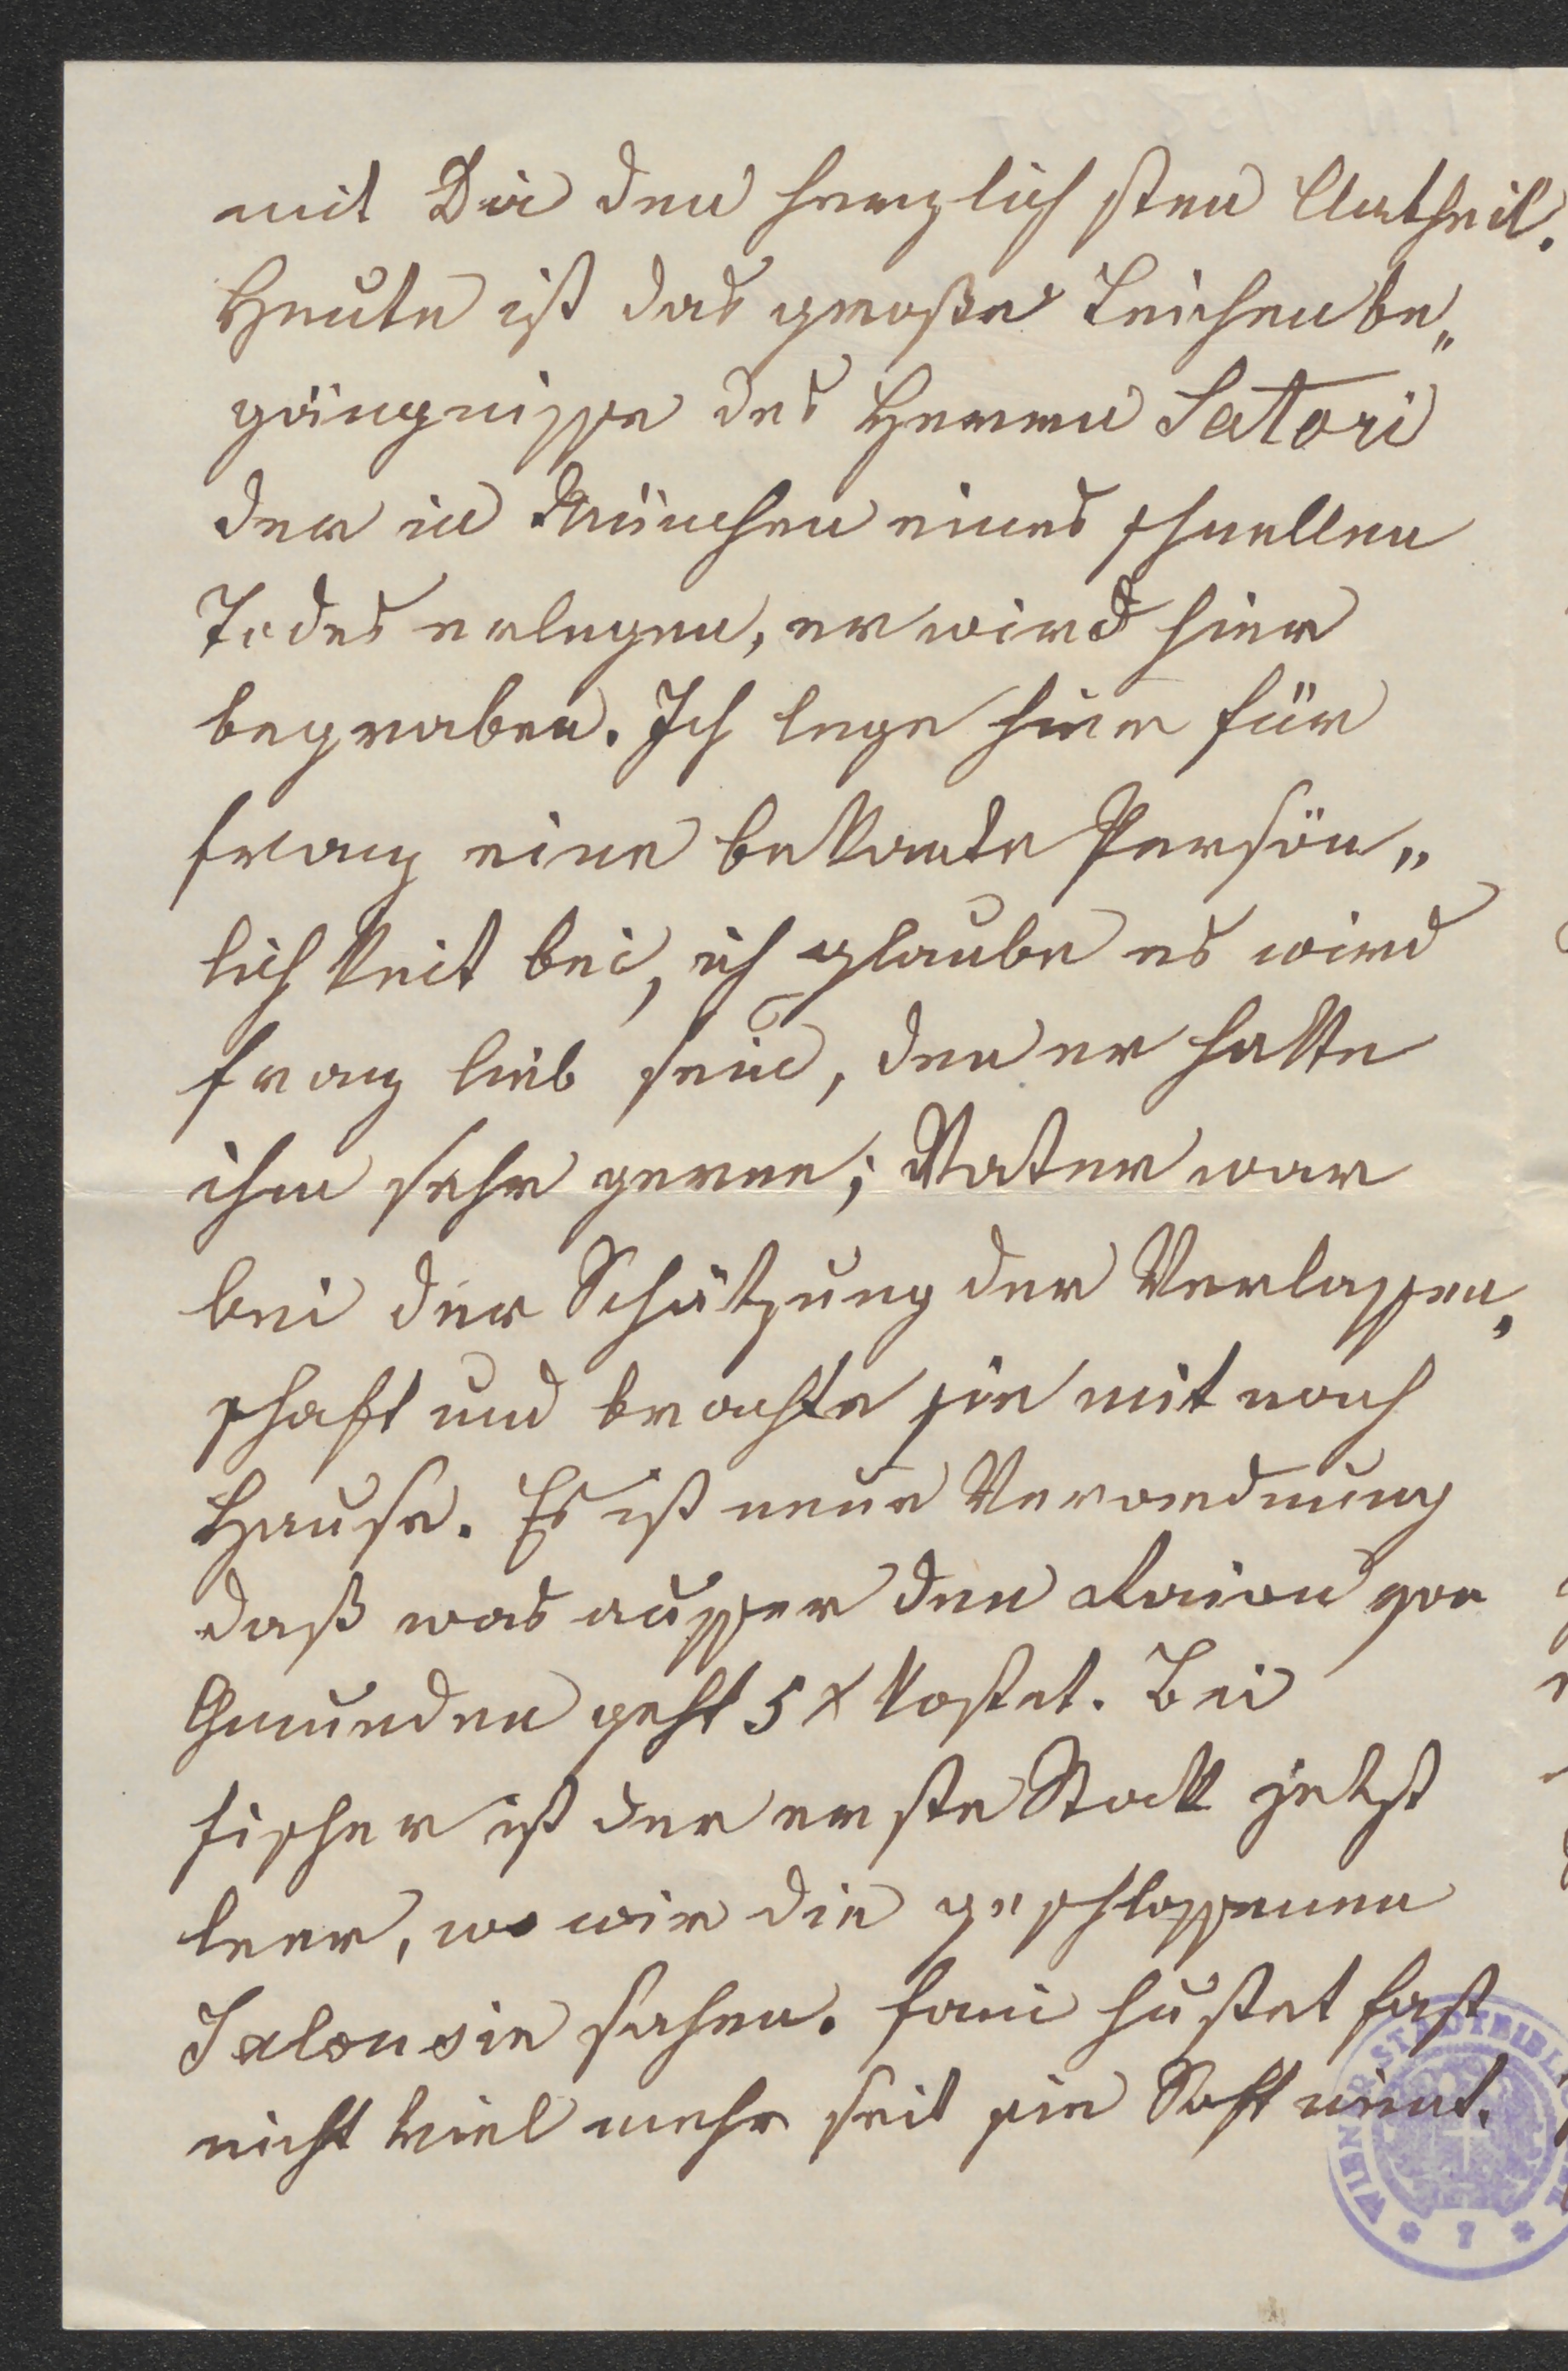 mit Dir den herzlichsten Antheil.
Heute ist das große Leichenbe„
gängnisse des Herrn Satori
der in München eines schnellen
Todes erlegen, er wird hier
begraben. Ich lege hier für
Franz eine bekante Persön„
lichkeit bei, ich glaube es wird
Franz lieb sein, den er hatte
ihm sehr gerne; Vater war
bei der Schätzung der Verlassen„
schaft und brachte sie mit nach
Hause. Es ist neue Verordnung
daß was ausser den Raion von
Gmunden geht 5 x kostet. Bei
Fischer ist der erste Stock jetzt
leer, wo wir die geschlossenen
Jalousie sahen. Fani hustet fast
nicht viel mehr seit sie Saft nimt.
WIENER STADTBIBL